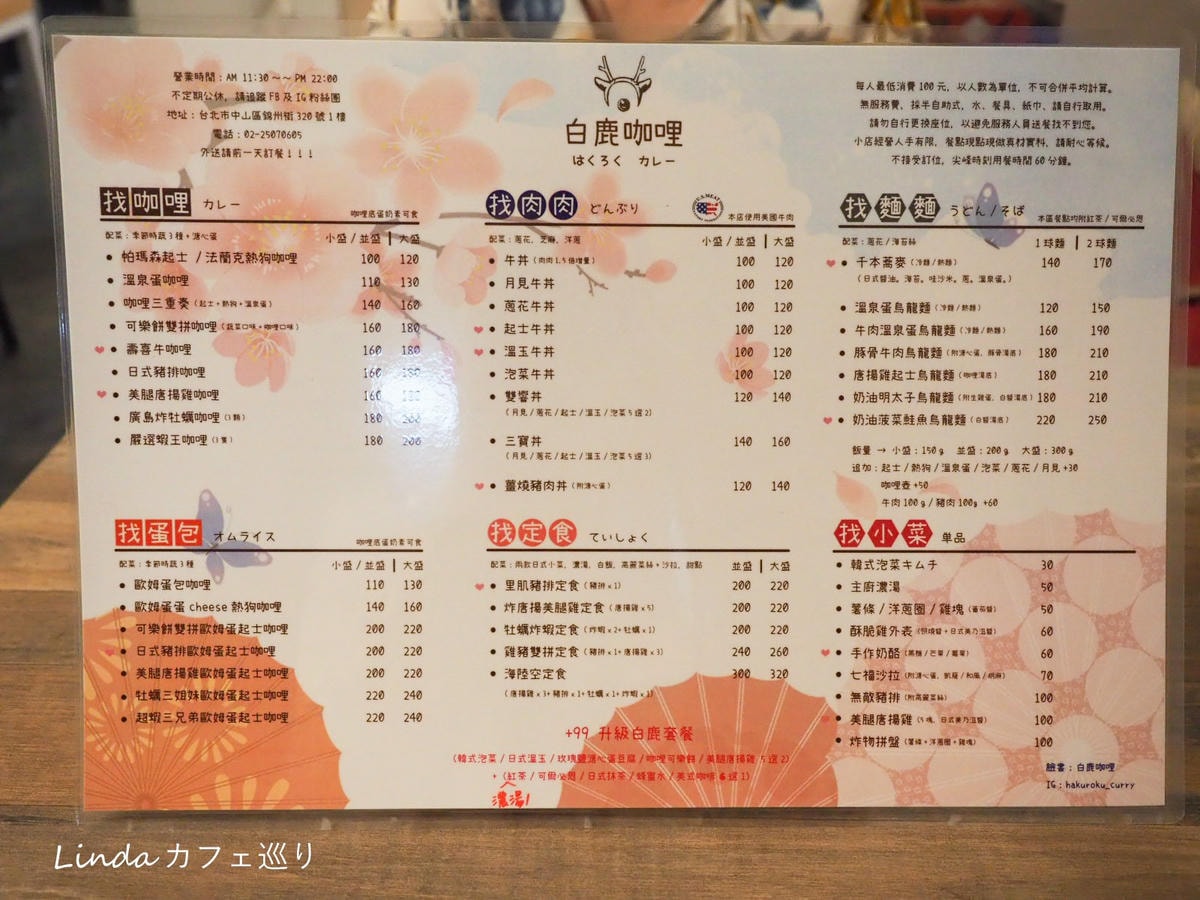 營業時間：AM 11:30～～PM 22:00
不定期公休，請追蹤 FB 及 IG 粉絲團
地址：台北市中山區錦州街 320 號 1 樓
電話：02-25070605
外送請前一天訂餐！！！
白鹿咖哩
はくろく カレー
每人最低消費 100 元，以人數為單位，不可合併平均計算。
無服務費，採半自助式，水、餐具、紙巾，請自行取用。
請勿自行更換座位，以避免服務人員送餐找不到您。
小店經營人手有限，餐點現點現做真材實料，請耐心等候。
不接受訂位，尖峰時刻用餐時間 60 分鐘。
找咖哩 カレー 咖哩底蛋奶素可食
配菜：季節時蔬 3 種 + 溏心蛋 小盛 / 並盛 | 大盛
帕瑪森起士 / 法蘭克熱狗咖哩 100 120
溫泉蛋咖哩 110 130
咖哩三重奏（起士 + 熱狗 + 溫泉蛋） 140 160
可樂餅雙拼咖哩（蔬菜口味 + 咖哩口味） 160 180
壽喜牛咖哩 160 180
日式豬排咖哩 160 180
美腿唐揚雞咖哩 160 180
廣島炸牡蠣咖哩（3 顆） 180 200
嚴選蝦王咖哩（3 隻） 180 200
找肉肉 どんぶり 本店使用美國牛肉
配菜：蔥花、芝麻、洋蔥 小盛 / 並盛 | 大盛
牛丼（肉肉 1.5 倍增量） 100 120
月見牛丼 100 120
蔥花牛丼 100 120
起士牛丼 100 120
溫玉牛丼 100 120
泡菜牛丼 100 120
雙響丼 120 140
（月見 / 蔥花 / 起士 / 溫玉 / 泡菜 5 選 2）
三寶丼 140 160
（月見 / 蔥花 / 起士 / 溫玉 / 泡菜 5 選 3）
薑燒豬肉丼（附溏心蛋） 120 140
找麵麵 うどん / そば 本區餐點均附紅茶 / 可爾必思
配菜：蔥花 / 海苔絲 1 球麵 | 2 球麵
千本蕎麥（冷麵 / 熱麵） 140 170
（日式醬油。海苔。哇沙米。蔥。溫泉蛋。）
溫泉蛋烏龍麵（冷麵 / 熱麵） 120 150
牛肉溫泉蛋烏龍麵（冷麵 / 熱麵） 160 190
豚骨牛肉烏龍麵（附溏心蛋、豚骨湯底） 180 210
唐揚雞起士烏龍麵（咖哩湯底） 180 210
奶油明太子烏龍麵（附生雞蛋、白醬湯底） 180 210
奶油菠菜鮭魚烏龍麵（白醬湯底） 220 250
飯量 → 小盛：150 g 並盛：200 g 大盛：300 g
追加：起士 / 熱狗 / 溫泉蛋 / 泡菜 / 蔥花 / 月見 +30
咖哩壺 +50
牛肉 100 g / 豬肉 100g +60
找蛋包 オムライス 咖哩底蛋奶素可食
配菜：季節時蔬 3 種 小盛 / 並盛 | 大盛
歐姆蛋包咖哩 110 130
歐姆蛋蛋 cheese 熱狗咖哩 140 160
可樂餅雙拼歐姆蛋起士咖哩 200 220
日式豬排歐姆蛋起士咖哩 200 220
美腿唐揚雞歐姆蛋起士咖哩 200 220
牡蠣三姐妹歐姆蛋起士咖哩 220 240
超蝦三兄弟歐姆蛋起士咖哩 220 240
找定食 ていしょく
配菜：兩款日式小菜、濃湯、白飯、高麗菜絲 + 沙拉、甜點 並盛 | 大盛
里肌豬排定食（豬排 x1） 200 220
炸唐揚美腿雞定食（唐揚雞 x5） 200 220
牡蠣炸蝦定食（炸蝦 x2+ 牡蠣 x1） 200 220
雞豬雙拼定食（豬排 x1+ 唐揚雞 x3） 240 260
海陸空定食 300 320
（唐揚雞 x3+ 豬排 x1+ 牡蠣 x1+ 炸蝦 x3）
+99 升級白鹿套餐
（韓式泡菜 / 日式溫玉 / 玫瑰鹽溏心蛋豆腐 / 咖哩可樂餅 / 美腿唐揚雞 5 選 2）
+（紅茶 / 可爾必思 / 日式抹茶 / 蜂蜜水 / 美式咖啡 6 選 1）
濃湯/
找小菜 単品
韓式泡菜キムチ 30
主廚濃湯 50
薯條 / 洋蔥圈 / 雞塊（番茄醬） 50
酥脆雞外表（胡椒醬 + 日式美乃滋醬） 60
手作奶酪（黑糖 / 芒果 / 藍莓） 60
七福沙拉（附溏心蛋、凱薩 / 和風 / 胡麻） 70
無敵豬排（附高麗菜絲） 100
美腿唐揚雞（5 塊、日式美乃滋醬） 100
炸物拼盤（薯條 + 洋蔥圈 + 雞塊） 100
臉書：白鹿咖哩
IG：hakuroku_curry
Linda カフェ巡り